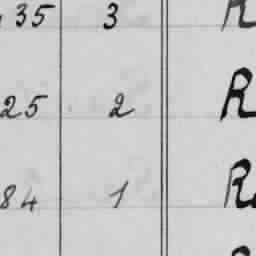 35 3 R
25 2 R
84 1 R